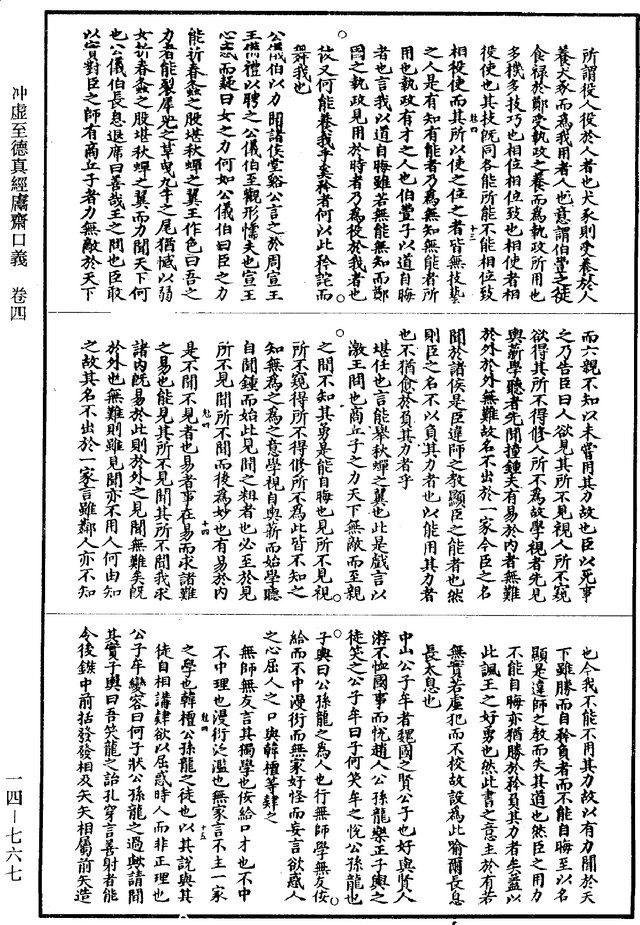 冲虛至德真經鬳齋口義　卷四
所謂役人役於人者也犬豕則受養於人
養犬豕而為我用者人也意謂伯豐之徒
食祿於鄭受執政之養而為執政所用也
多機多技巧也相位相致也相使者相
役使也其技既同各能所能不能相位致
相役使而其所以使之位之者皆無技藝
魁四　十三
之人是有知有能者乃為無知無能者所
用也執政有才之人也伯豐子以道自晦
者也言我以道自晦雖若無能無知而鄭
國之執政見用於時者乃為役於我者也
彼又何能養我乎矣矜者何以此矜詫而
舞我也
公儀伯以力聞諸侯堂谿公言之於周宣王
王備禮以聘之公儀伯至觀形懦夫也宣王
心惑而疑曰女之力何如公儀伯曰臣之力
能折春螽之股堪秋蟬之翼王作色曰吾之
力者能裂犀兕之革曳九牛之尾猶憾以弱
女折春螽之股堪秋蟬之翼而力聞天下何
也公儀伯長息退席曰善哉王之問也臣敢
以實對臣之師有商丘子者力無敵於天下
而六親不知以未嘗用其力故也臣以死事
之乃告臣曰人欲見其所不見視人所不窺
欲得其所不得修人所不為故學視者先見
輿薪學聽者先聞撞鍾夫有易於內者無難
於外於外無難故名不出於一家今臣之名
聞於諸侯是臣違師之教顯臣之能者也然
則臣之名不以負其力者也以能用其力者
也不猶愈於負其力者乎
堪任也言能舉秋蟬之翼也此是戲言以
激王問也商丘子之力天下無敵而至親
之間不知其勇是能自晦也見所不見視
所不窺得所不得修所不為此皆不知之
知無為之為之意學視自輿薪而始學聽
自聞鍾而始此見聞之粗者也必至於見
所不見聞所不聞而後為妙也有易於內
魁四　十四
是不聞不見者也易者事在易而求諸難
之易也能見其所不見聞其所不聞我求
諸內既易於此則於外之見聞無難矣既
於外也無難則雖見聞亦不用人何由知
之故其名不出於一家言雖鄰人亦不知
也今我不能不用其力故以有力聞於天
下雖勝而自矜負者而不能自晦至以名
顯是違師之教而失其道也然臣之用力
不能自晦亦猶勝於矜負其力者矣蓋以
此諷王之好勇也然此書之意主於有若
無實若虛犯而不校故設為此喻爾長息
長太息也
中山公子牟者魏國之賢公子也好與賢人
游不恤國事而悅趙人公孫龍樂正子輿之
徒笑之公子牟曰子何笑牟之悅公孫龍也
子輿曰公孫龍之為人也行無師學無友佞
給而不中漫衍而無家好怪而妄言欲惑人
之心屈人之口與韓檀等肄之
無師無友言其獨學也佞給口才也不中
不中理也漫衍泛濫也無家言不主一家
魁四　十五
之學也韓檀公孫龍之徒也以其說與其
徒自相講肄欲以屈惑時人而非正理也
公子牟變容曰何子狀公孫龍之過歟請聞
其實子輿曰吾笑龍之詒孔穿言善射者能
令後鏃中前括發發相及矢矢相屬前矢造
一四—七六七